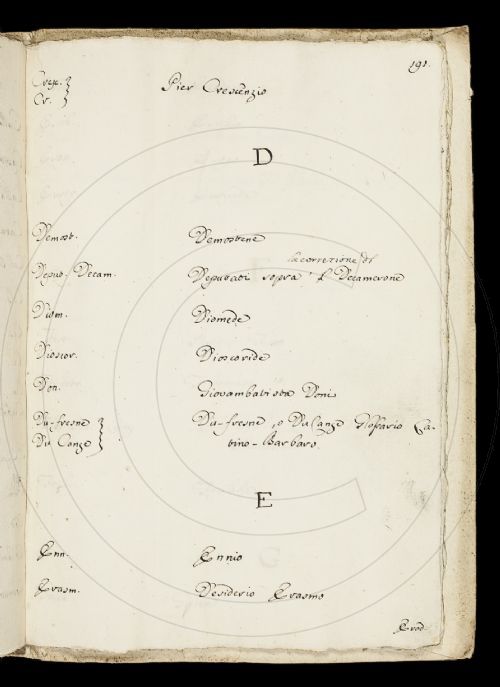 191.
Cresc. }
Cr. } Pier Crescenzio
D
Demost. Demostene
la correzione del
Deput. Decam. Deputati sopra 'l Decamerone
Diom. Diomede
Dioscor. Dioscoride
Don. Giovambatista Doni
Du-fresne } Du-fresne, o DuCange Glossario La-
Du Cange } tino-Barbaro
E
Enn. Ennio
Erasm. Desiderio Erasmo
Erod.